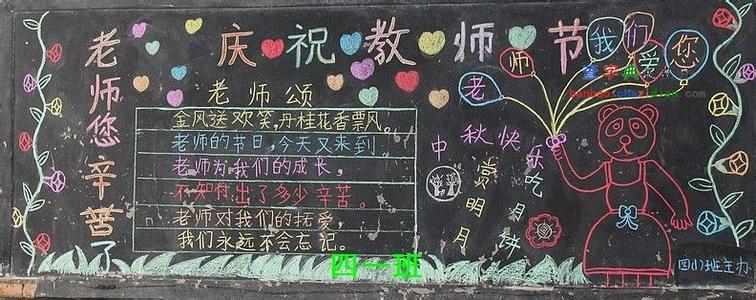 老师您辛苦了
庆祝教师节
老师我们爱您
老师颂
金风送欢笑,丹桂花香飘。
老师的节日,今天又来到.
老师为我们的成长,
不知付出了多少辛苦。
老师对我们的抚爱,
我们永远不会忘记。
中秋快乐
赏明月
吃月饼
四(1)班主办
四一班
查字典